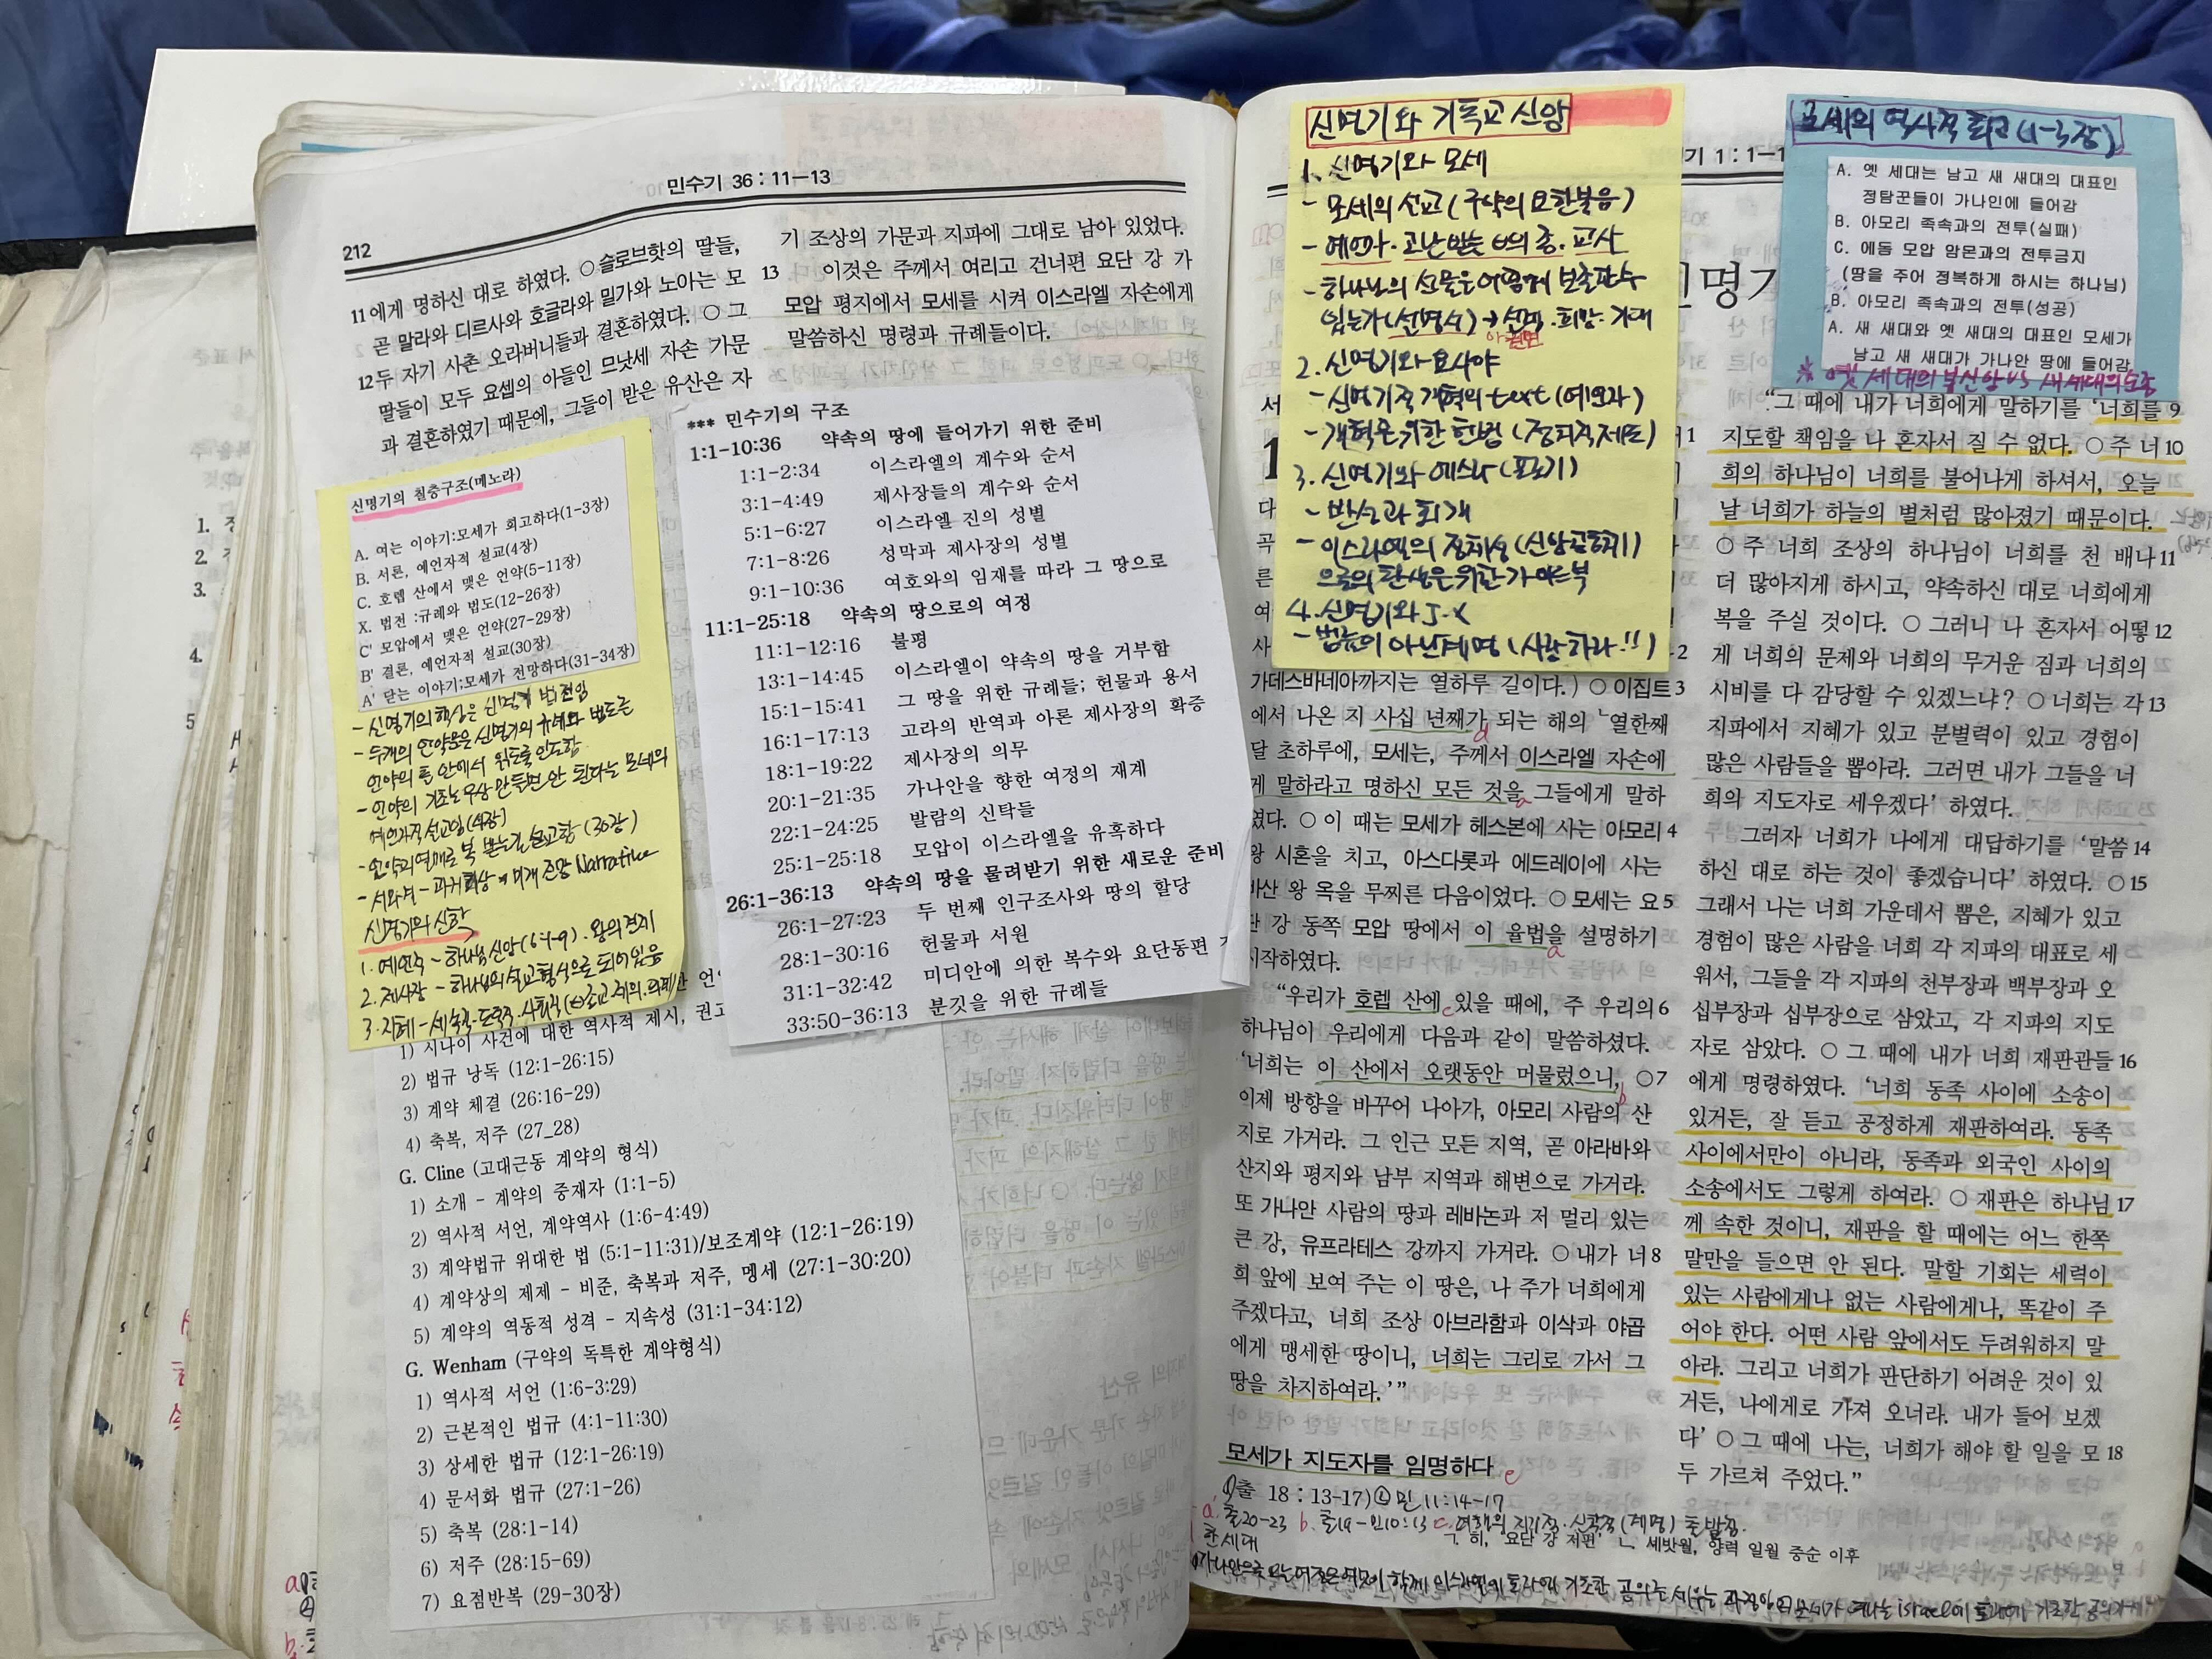 민수기 36 : 11—13
212
11 에게 명하신 대로 하였다. ○ 슬로브핫의 딸들,
곧 말라와 디르사와 호글라와 밀가와 노아는 모
두 자기 사촌 오라버니들과 결혼하였다. ○ 그
12
딸들이 모두 요셉의 아들인 므낫세 자손 가문
과 결혼하였기 때문에, 그들이 받은 유산은 자
기 조상의 가문과 지파에 그대로 남아 있었다.
13 이것은 주께서 여리고 건너편 요단 강 가
모압 평지에서 모세를 시켜 이스라엘 자손에게
말씀하신 명령과 규례들이다.
신명기의 칠층구조(메노라)
A. 여는 이야기:모세가 회고하다(1-3장)
B. 서론, 예언자적 설교(4장)
C. 호렙 산에서 맺은 언약(5-11장)
X. 법전 :규례와 법도(12-26장)
C' 모압에서 맺은 언약(27-29장)
B' 결론, 예언자적 설교(30장)
A' 닫는 이야기;모세가 전망하다(31-34장)
- 신명기의 핵심은 신명기 법전임
- 두개의 언약문은 신명기의 규례와 법도를
언약의 틀 안에서 읽도록 인도함
- 언약의 기초는 우상 만들면 안 된다는 모세의
예언자적 설교임(4장)
설교함 (30장)
Narrative
신명기의 신학
1. 예언 - 하나님 신앙(6:4-9). 왕의 견제
2. 제사장 - 하나님의 설교 형식으로 되어 있음
3. 지혜 - 세속적·도덕적·사회적
*** 민수기의 구조
1:1-10:36 약속의 땅에 들어가기 위한 준비
1:1-2:34 이스라엘의 계수와 순서
3:1-4:49 제사장들의 계수와 순서
5:1-6:27 이스라엘 진의 성별
7:1-8:26 성막과 제사장의 성별
9:1-10:36 여호와의 임재를 따라 그 땅으로
11:1-25:18 약속의 땅으로의 여정
11:1-12:16 불평
13:1-14:45 이스라엘이 약속의 땅을 거부함
15:1-15:41 그 땅을 위한 규례들; 헌물과 용서
16:1-17:13 고라의 반역과 아론 제사장의 확증
18:1-19:22 제사장의 의무
20:1-21:35 가나안을 향한 여정의 재계
22:1-24:25 발람의 신탁들
25:1-25:18 모압이 이스라엘을 유혹하다
26:1-36:13 약속의 땅을 물려받기 위한 새로운 준비
26:1-27:23 두 번째 인구조사와 땅의 할당
28:1-30:16 헌물과 서원
31:1-32:42 미디안에 의한 복수와 요단동편
33:50-36:13 분깃을 위한 규례들
1) 시나이 사건에 대한 역사적 제시, 권고
2) 법규 낭독 (12:1-26:15)
3) 계약 체결 (26:16-29)
4) 축복, 저주 (27_28)
G. Cline (고대근동 계약의 형식)
1) 소개 - 계약의 중재자 (1:1-5)
2) 역사적 서언, 계약역사 (1:6-4:49)
3) 계약법규 위대한 법 (5:1-11:31)/보조계약 (12:1-26:19)
4) 계약상의 제제 - 비준, 축복과 저주, 맹세 (27:1-30:20)
5) 계약의 역동적 성격 - 지속성 (31:1-34:12)
G. Wenham (구약의 독특한 계약형식)
1) 역사적 서언 (1:6-3:29)
2) 근본적인 법규 (4:1-11:30)
3) 상세한 법규 (12:1-26:19)
4) 문서화 법규 (27:1-26)
5) 축복 (28:1-14)
6) 저주 (28:15-69)
7) 요점반복 (29-30장)
신명기와 기독교 신앙
1. 신명기와 모세
- 모세의 설교 (구약의 요한복음)
- 예언자·고난받는 야의 종·교사
- 하나님의 선물은 어떻게 보존될수
있는가
2. 신명기와 요시야
- 신명기적 개혁의 text
- 개혁을 위한 헌법 (정치적제도)
3. 신명기와 에스라 (포로기)
- 반성과 회개
- 이스라엘의 정체성 (신앙공동체)
으로의 탄생을 위한 가이드북
4. 신명기와 J.X
- 법률이 아닌 계명 (사랑하라!!)
모세의 역사적 회고 (1-3장)
A. 옛 세대는 남고 새 세대의 대표인
정탐꾼들이 가나인에 들어감
B. 아모리 족속과의 전투(실패)
C. 에돔 모압 암몬과의 전투금지
(땅을 주어 정복하게 하시는 하나님)
B. 아모리 족속과의 전투(성공)
A. 새 세대와 옛 세대의 대표인 모세가
남고 새 세대가 가나안 땅에 들어감
※ 옛 세대의 불신앙 vs 새 세대의 순종
기 1 : 1—1
가데스바네아까지는 열하루 길이다.) ○ 이집트 3
에서 나온 지 사십 년째가 되는 해의 ㄴ열한째
달 초하루에, 모세는, 주께서 이스라엘 자손에
게 말하라고 명하신 모든 것을 그들에게 말하
였다. ○ 이 때는 모세가 헤스본에 사는 아모리 4
왕 시혼을 치고, 아스다롯과 에드레이에 사는
바산 왕 옥을 무찌른 다음이었다. ○ 모세는 요 5
단 강 동쪽 모압 땅에서 이 율법을 설명하기
시작하였다.
“우리가 호렙 산에 있을 때에, 주 우리의 6
하나님이 우리에게 다음과 같이 말씀하셨다.
‘너희는 이 산에서 오랫동안 머물렀으니, ○ 7
이제 방향을 바꾸어 나아가, 아모리 사람의 산
지로 가거라. 그 인근 모든 지역, 곧 아라바와
산지와 평지와 남부 지역과 해변으로 가거라.
또 가나안 사람의 땅과 레바논과 저 멀리 있는
큰 강, 유프라테스 강까지 가거라. ○ 내가 너 8
희 앞에 보여 주는 이 땅은, 나 주가 너희에게
주겠다고, 너희 조상 아브라함과 이삭과 야곱
에게 맹세한 땅이니, 너희는 그리로 가서 그
땅을 차지하여라.’”
모세가 지도자를 임명하다
출 18 : 13-17) 민 11:14-17
a. 출20-23 b. 출19-민10:13
ㄱ. 히, ‘요단 강 저편’ ㄴ. 세밧월, 양력 일월 중순 이후
“그 때에 내가 너희에게 말하기를 ‘너희를 9
지도할 책임을 나 혼자서 질 수 없다. ○ 주 너 10
희의 하나님이 너희를 불어나게 하셔서, 오늘
날 너희가 하늘의 별처럼 많아졌기 때문이다.
○ 주 너희 조상의 하나님이 너희를 천 배나 11
더 많아지게 하시고, 약속하신 대로 너희에게
복을 주실 것이다. ○ 그러니 나 혼자서 어떻 12
게 너희의 문제와 너희의 무거운 짐과 너희의
시비를 다 감당할 수 있겠느냐? ○ 너희는 각 13
지파에서 지혜가 있고 분별력이 있고 경험이
많은 사람들을 뽑아라. 그러면 내가 그들을 너
희의 지도자로 세우겠다’ 하였다.
그러자 너희가 나에게 대답하기를 ‘말씀 14
하신 대로 하는 것이 좋겠습니다’ 하였다. ○ 15
그래서 나는 너희 가운데서 뽑은, 지혜가 있고
경험이 많은 사람을 너희 각 지파의 대표로 세
워서, 그들을 각 지파의 천부장과 백부장과 오
십부장과 십부장으로 삼았고, 각 지파의 지도
자로 삼았다. ○ 그 때에 내가 너희 재판관들 16
에게 명령하였다. ‘너희 동족 사이에 소송이
있거든, 잘 듣고 공정하게 재판하여라. 동족
사이에서만이 아니라, 동족과 외국인 사이의
소송에서도 그렇게 하여라. ○ 재판은 하나님 17
께 속한 것이니, 재판을 할 때에는 어느 한쪽
말만을 들으면 안 된다. 말할 기회는 세력이
있는 사람에게나 없는 사람에게나, 똑같이 주
어야 한다. 어떤 사람 앞에서도 두려워하지 말
아라. 그리고 너희가 판단하기 어려운 것이 있
거든, 나에게로 가져 오너라. 내가 들어 보겠
다’ ○ 그 때에 나는, 너희가 해야 할 일을 모 18
두 가르쳐 주었다.”